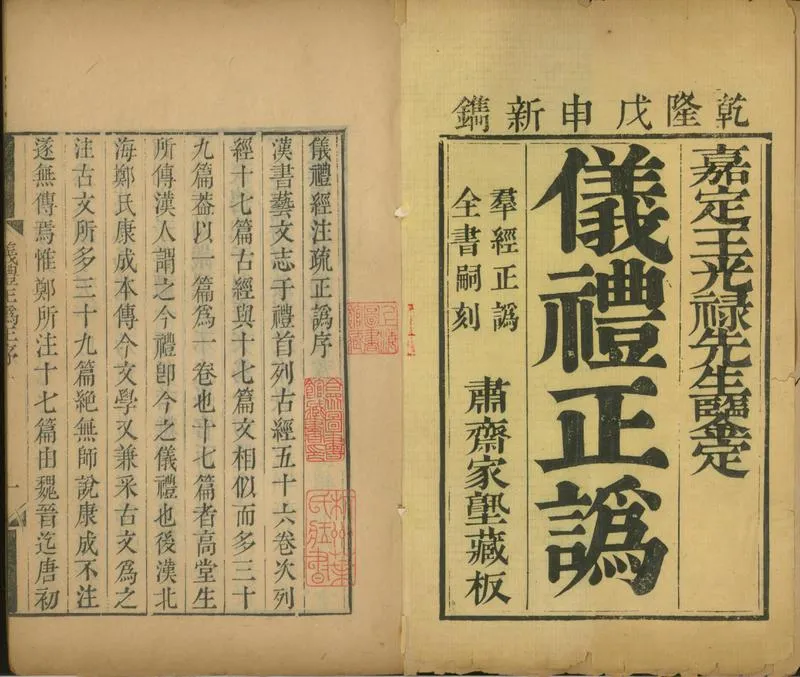 乾隆戊申新鐫
嘉定王光祿先生鑒定
儀禮正譌
羣經正譌
全書嗣刻
肅齋家塾藏板
儀禮經注疏正譌序
漢書藝文志于禮首列古經五十六卷次列
經十七篇古經與十七篇文相似而多三十
九篇葢以一篇爲一卷也十七篇者高堂生
所傳漢人謂之今禮卽今之儀禮也後漢北
海鄭氏康成本傳今文學又兼采古文爲之
注古文所多三十九篇絕無師說康成不注
遂無傳焉惟鄭所注十七篇由魏晉迄唐初
儀禮正譌序
一